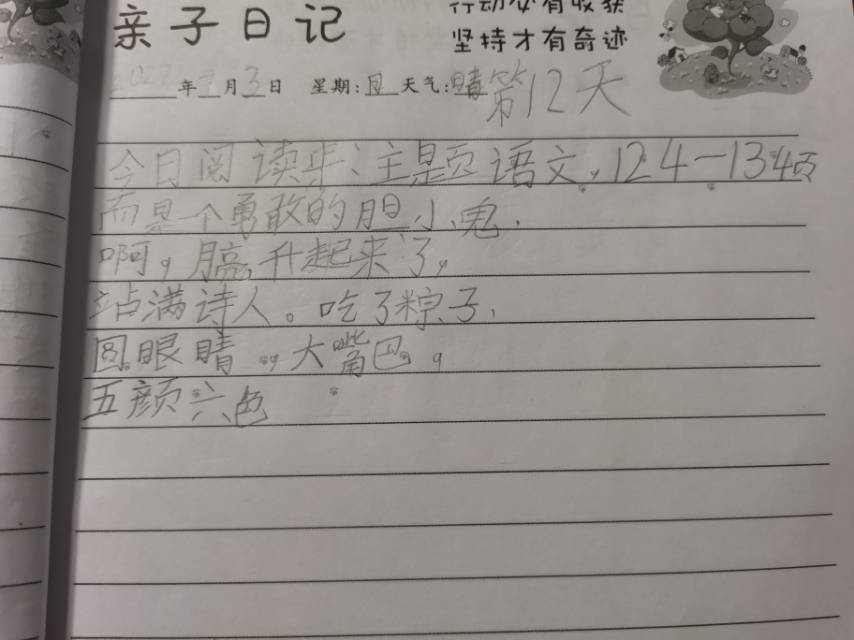 亲子日记
行动必有收获
坚持才有奇迹
2022年7月3日 星期:日 天气:晴 第12天
今日阅读毕:主题语文,124-134页
而是个勇敢的胆小鬼.
啊,膈升起来了,
站满诗人。吃了粽子,
圆眼睛,大嘴巴,
五颜六色